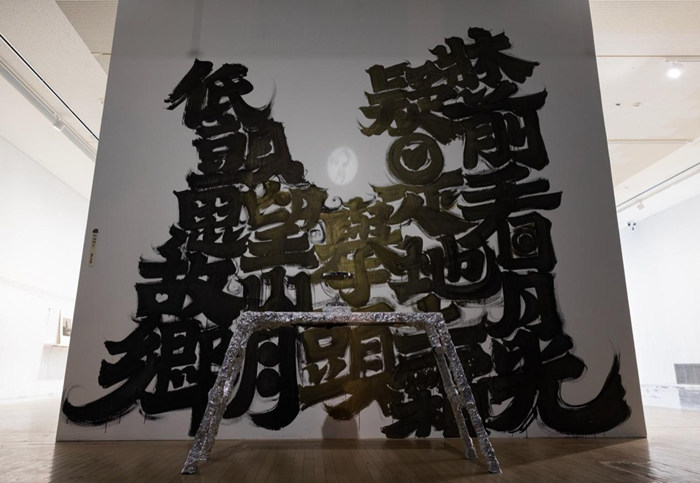 牀前看月光
疑是地上霜
舉頭
望山月
低頭思故郷